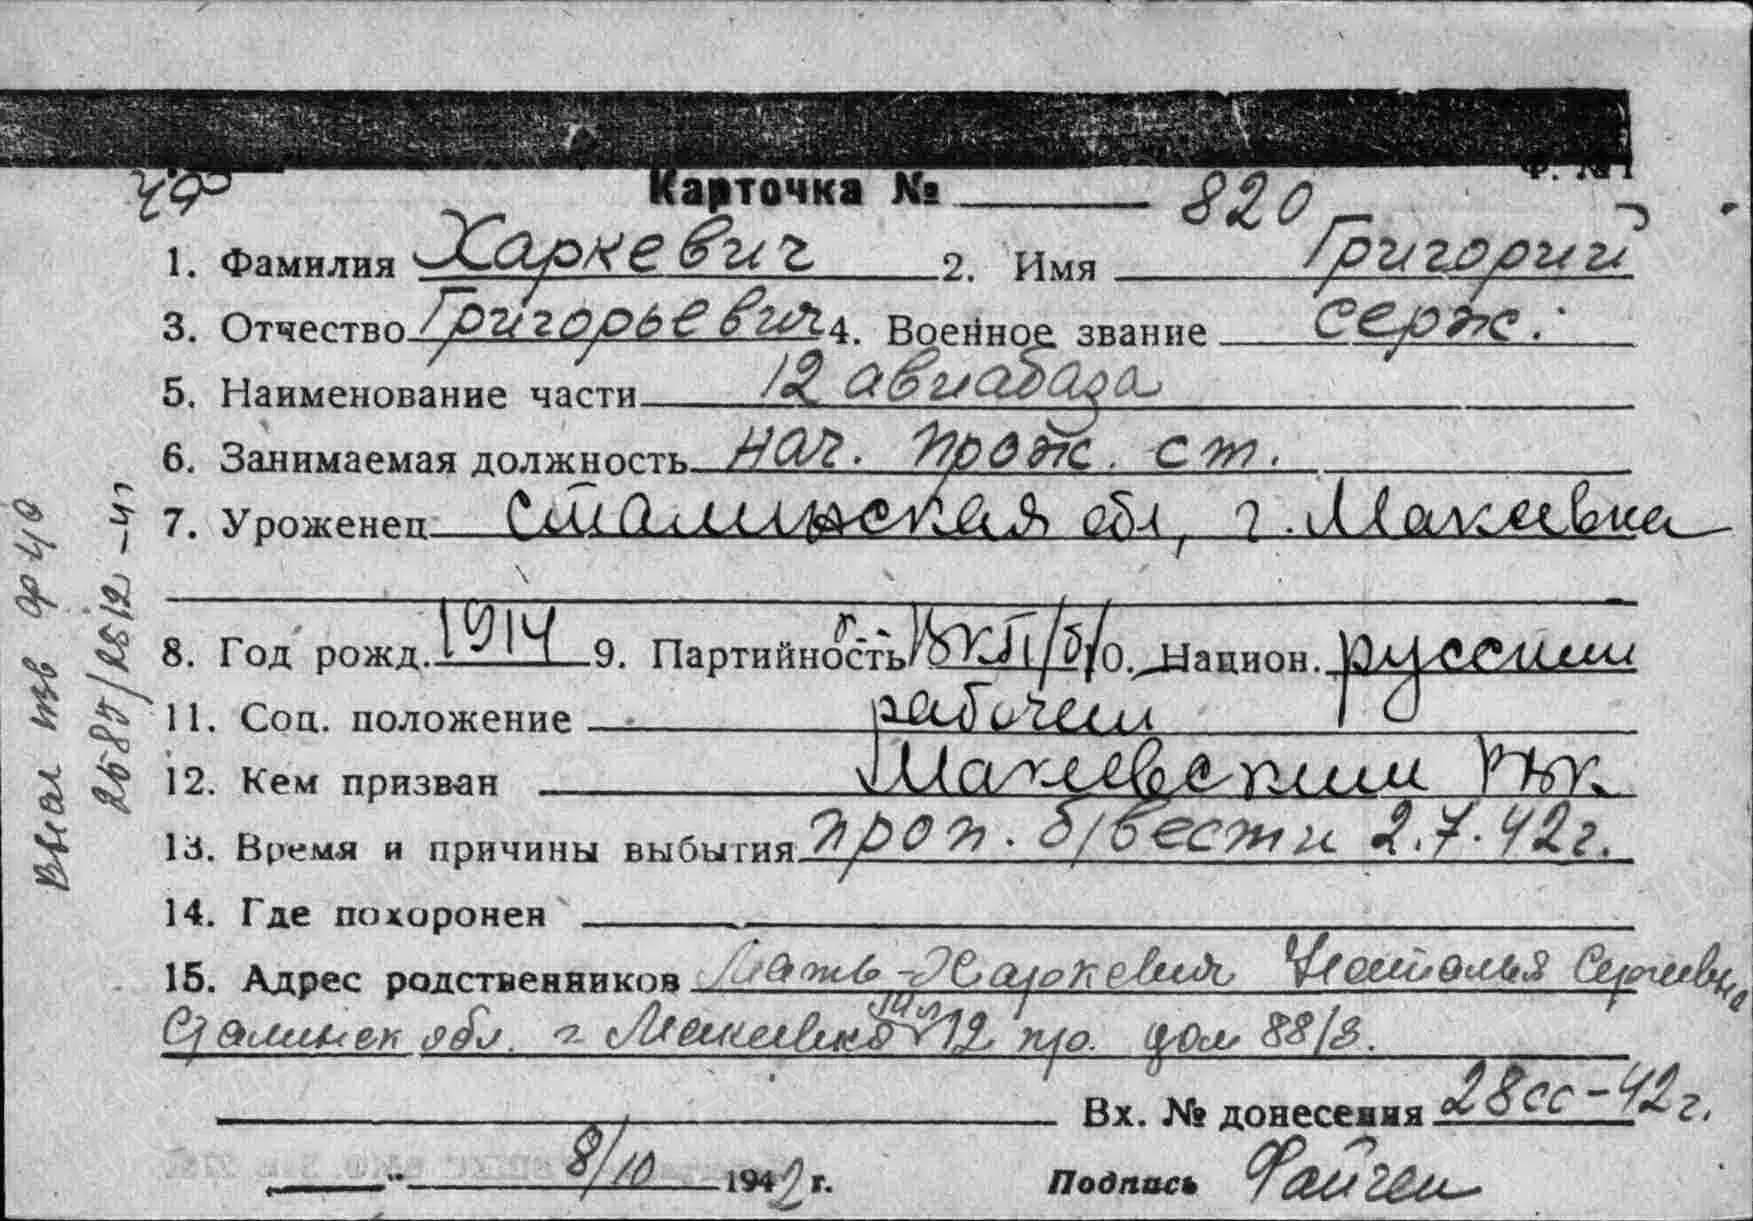 Ф. №1
Карточка № 820
чф
1. Фамилия Харкевич 2. Имя Григорий
3. Отчество Григорьевич 4. Военное звание серж.
5. Наименование части 12 авиабаза
6. Занимаемая должность нач. прож. ст.
7. Уроженец Сталинская обл, г. Макеевка
8. Год рожд. 1914 9. Партийность ВКП/б/ 10. Национ. русский
11. Соц. положение рабочий
12. Кем призван Макеевским РВК
13. Время и причины выбытия проп. б/вести 2.7.42г.
14. Где похоронен
15. Адрес родственников Мать - Харкевич Наталья Сергеевна
Сталинск обл. г Макеевка 12 пр. дом 88/3.
Вх. № донесения 28сс-42г.
" 8/10 1942 г. Подпись